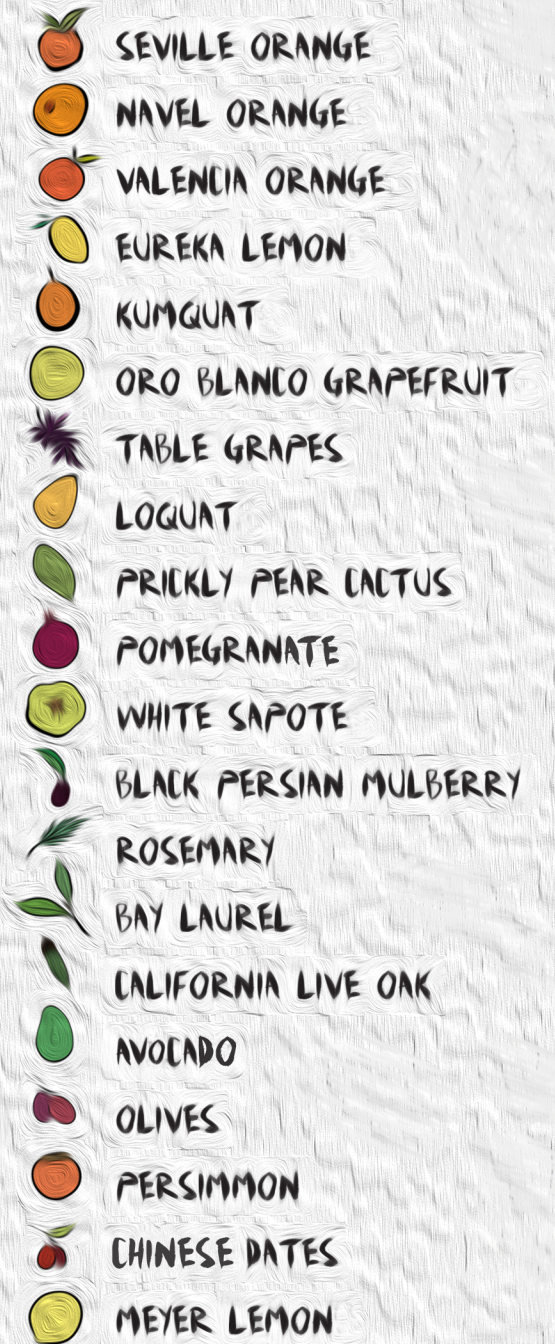 SEVILLE ORANGE
NAVEL ORANGE
VALENCIA ORANGE
EUREKA LEMON
KUMQUAT
ORO BLANCO GRAPEFRUIT
TABLE GRAPES
LOQUAT
PRICKLY PEAR CACTUS
POMEGRANATE
WHITE SAPOTE
BLACK PERSIAN MULBERRY
ROSEMARY
BAY LAUREL
CALIFORNIA LIVE OAK
AVOCADO
OLIVES
PERSIMMON
CHINESE DATES
MEYER LEMON